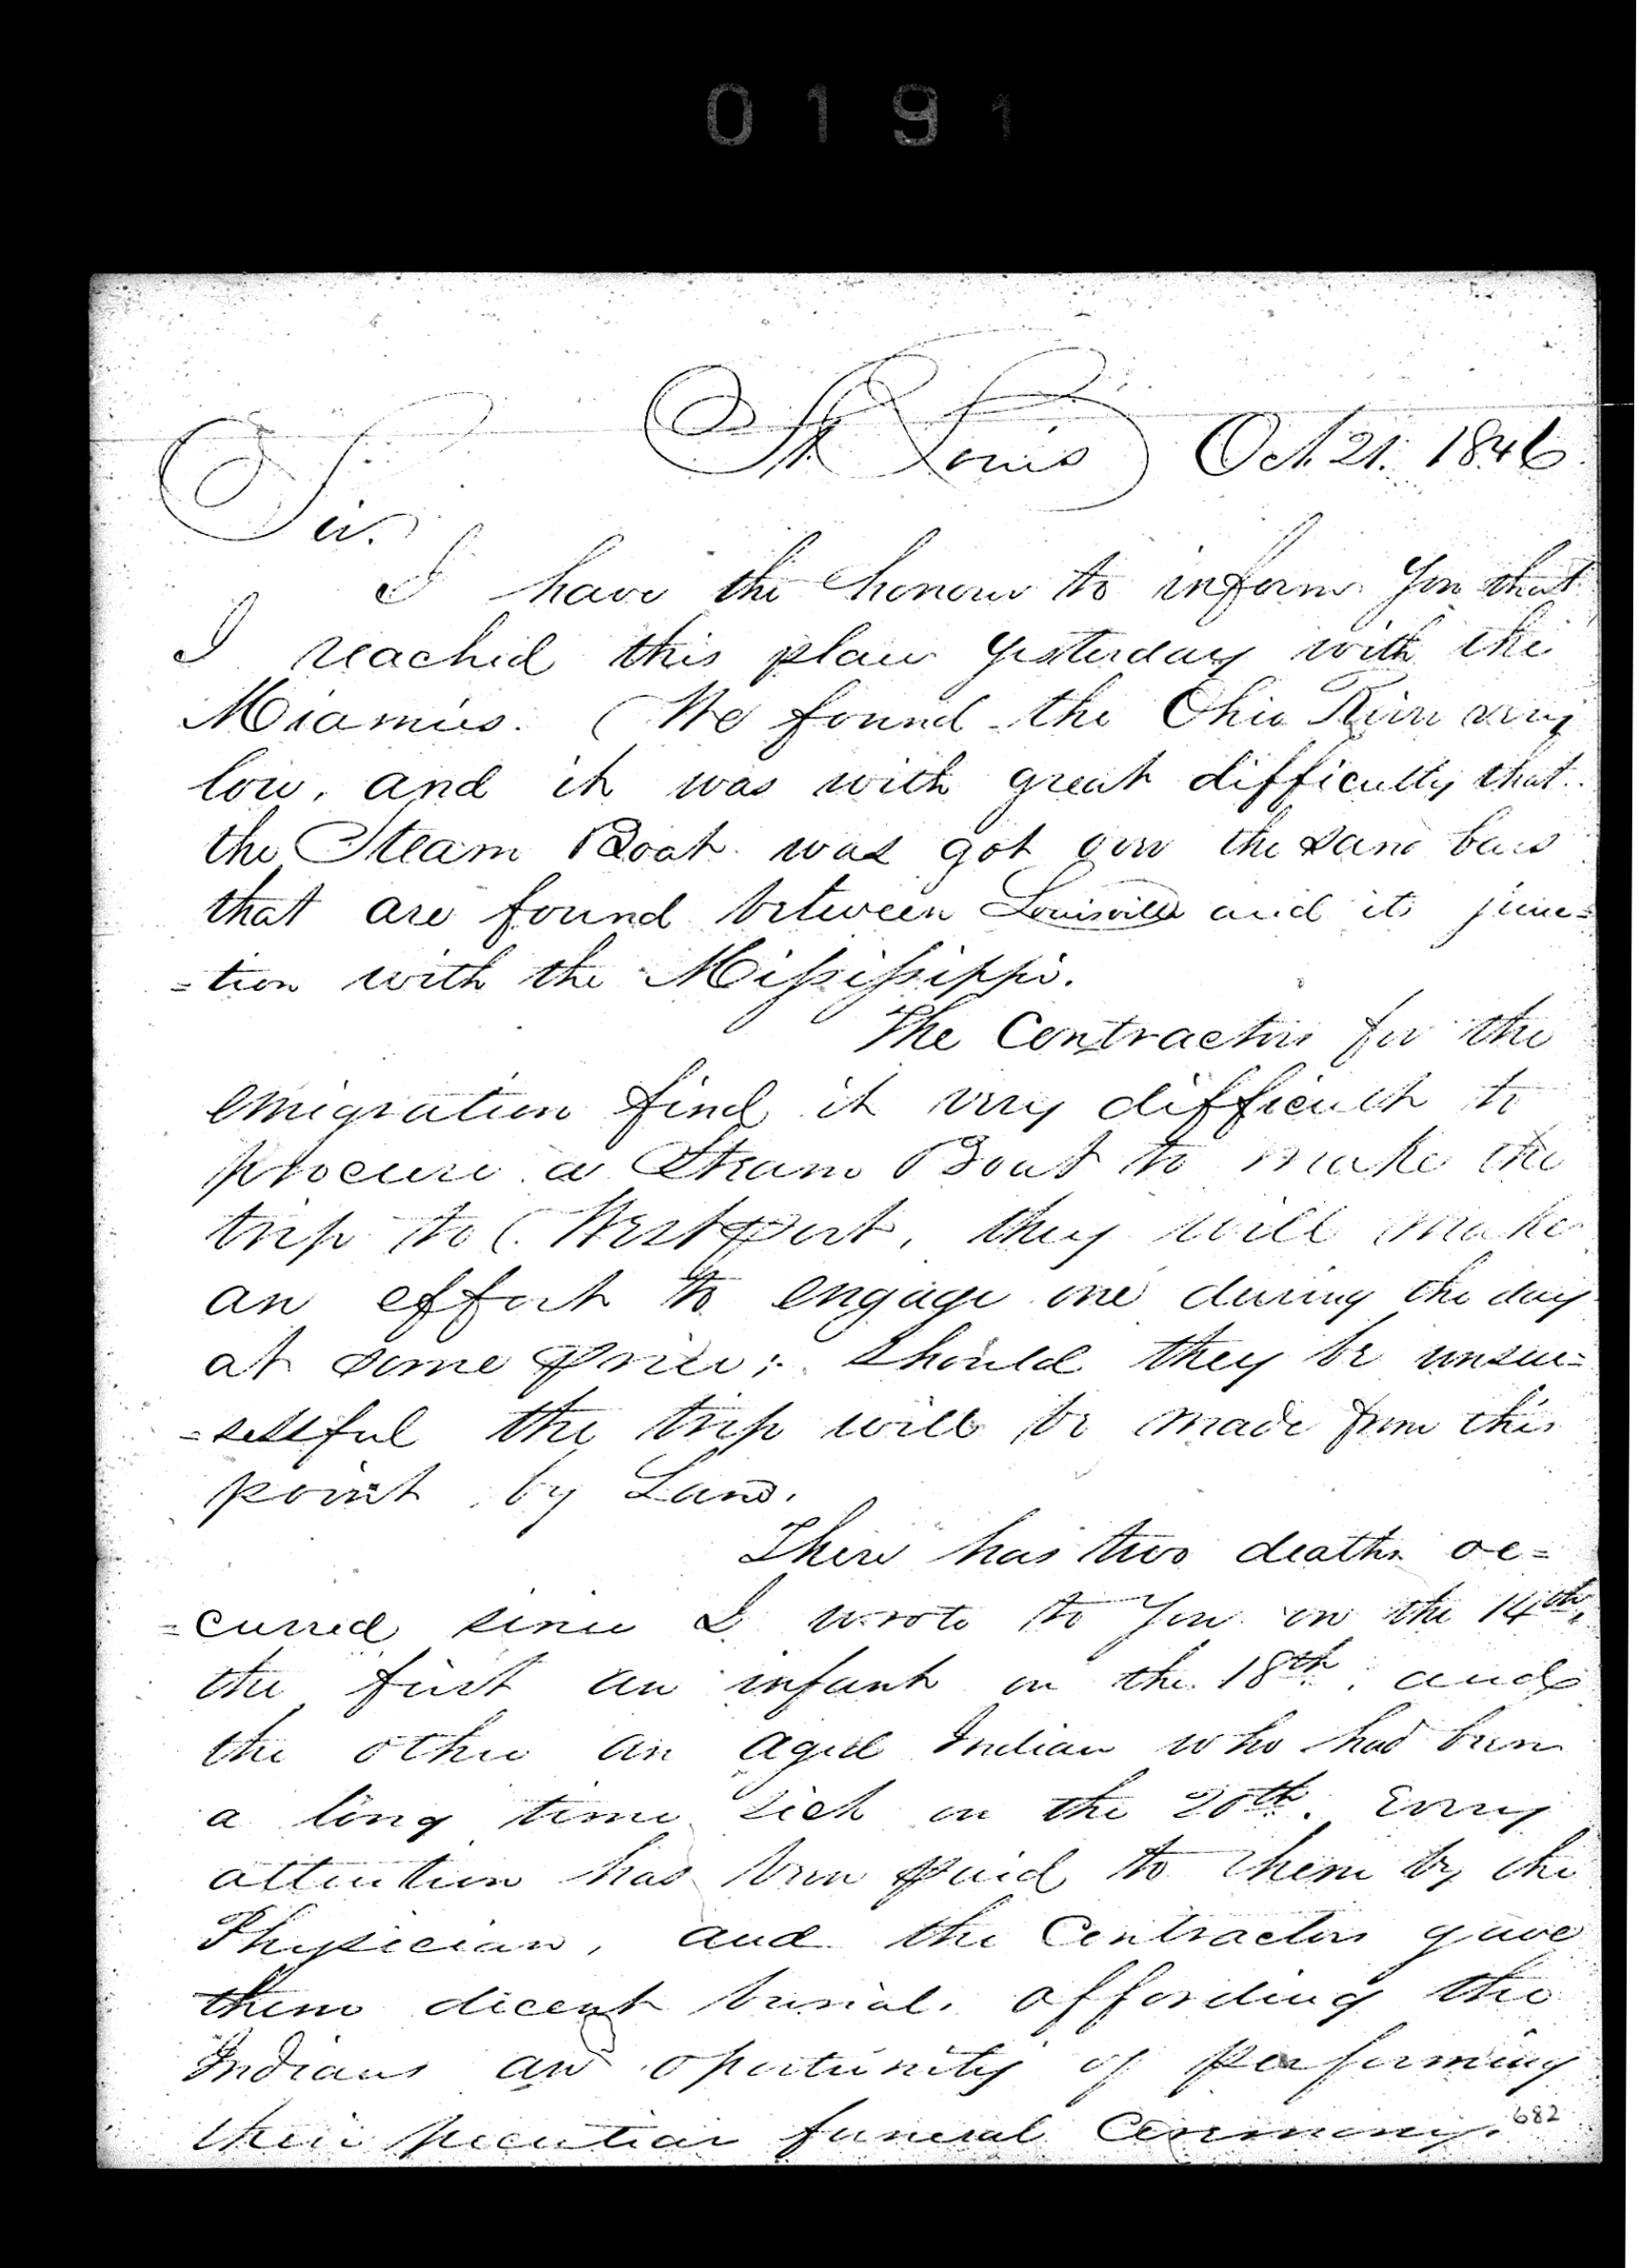 0191
St. Louis Oct. 21. 1846
Sir.
I have the honour to inform You that
I reached this place Yesterday with the
Miamies. We found the Ohio River very
low, and it was with great difficulty that
the Steam Boat was got over the sand bars
that are found between Louisville and its junc=
=tion with the Mississippi.
The Contractors for the
emigration find it very difficult to
procure a Steam Boat to make the
trip to Westport, they will make
an effort to engage one during the day
at some price; should they be unsuc=
=sessful the trip will be made from this
point by Land.
There has two deaths oc=
=curred since I wrote to You on the 14th,
the first an infant on the 18th. and
the other an aged Indian who had been
a long time sick on the 20th. Every
attention has been paid to them by the
Physician, and the Contractors gave
them decent burial, affording the
Indians an oportunity of performing
their peculiar funeral Ceremony.
682